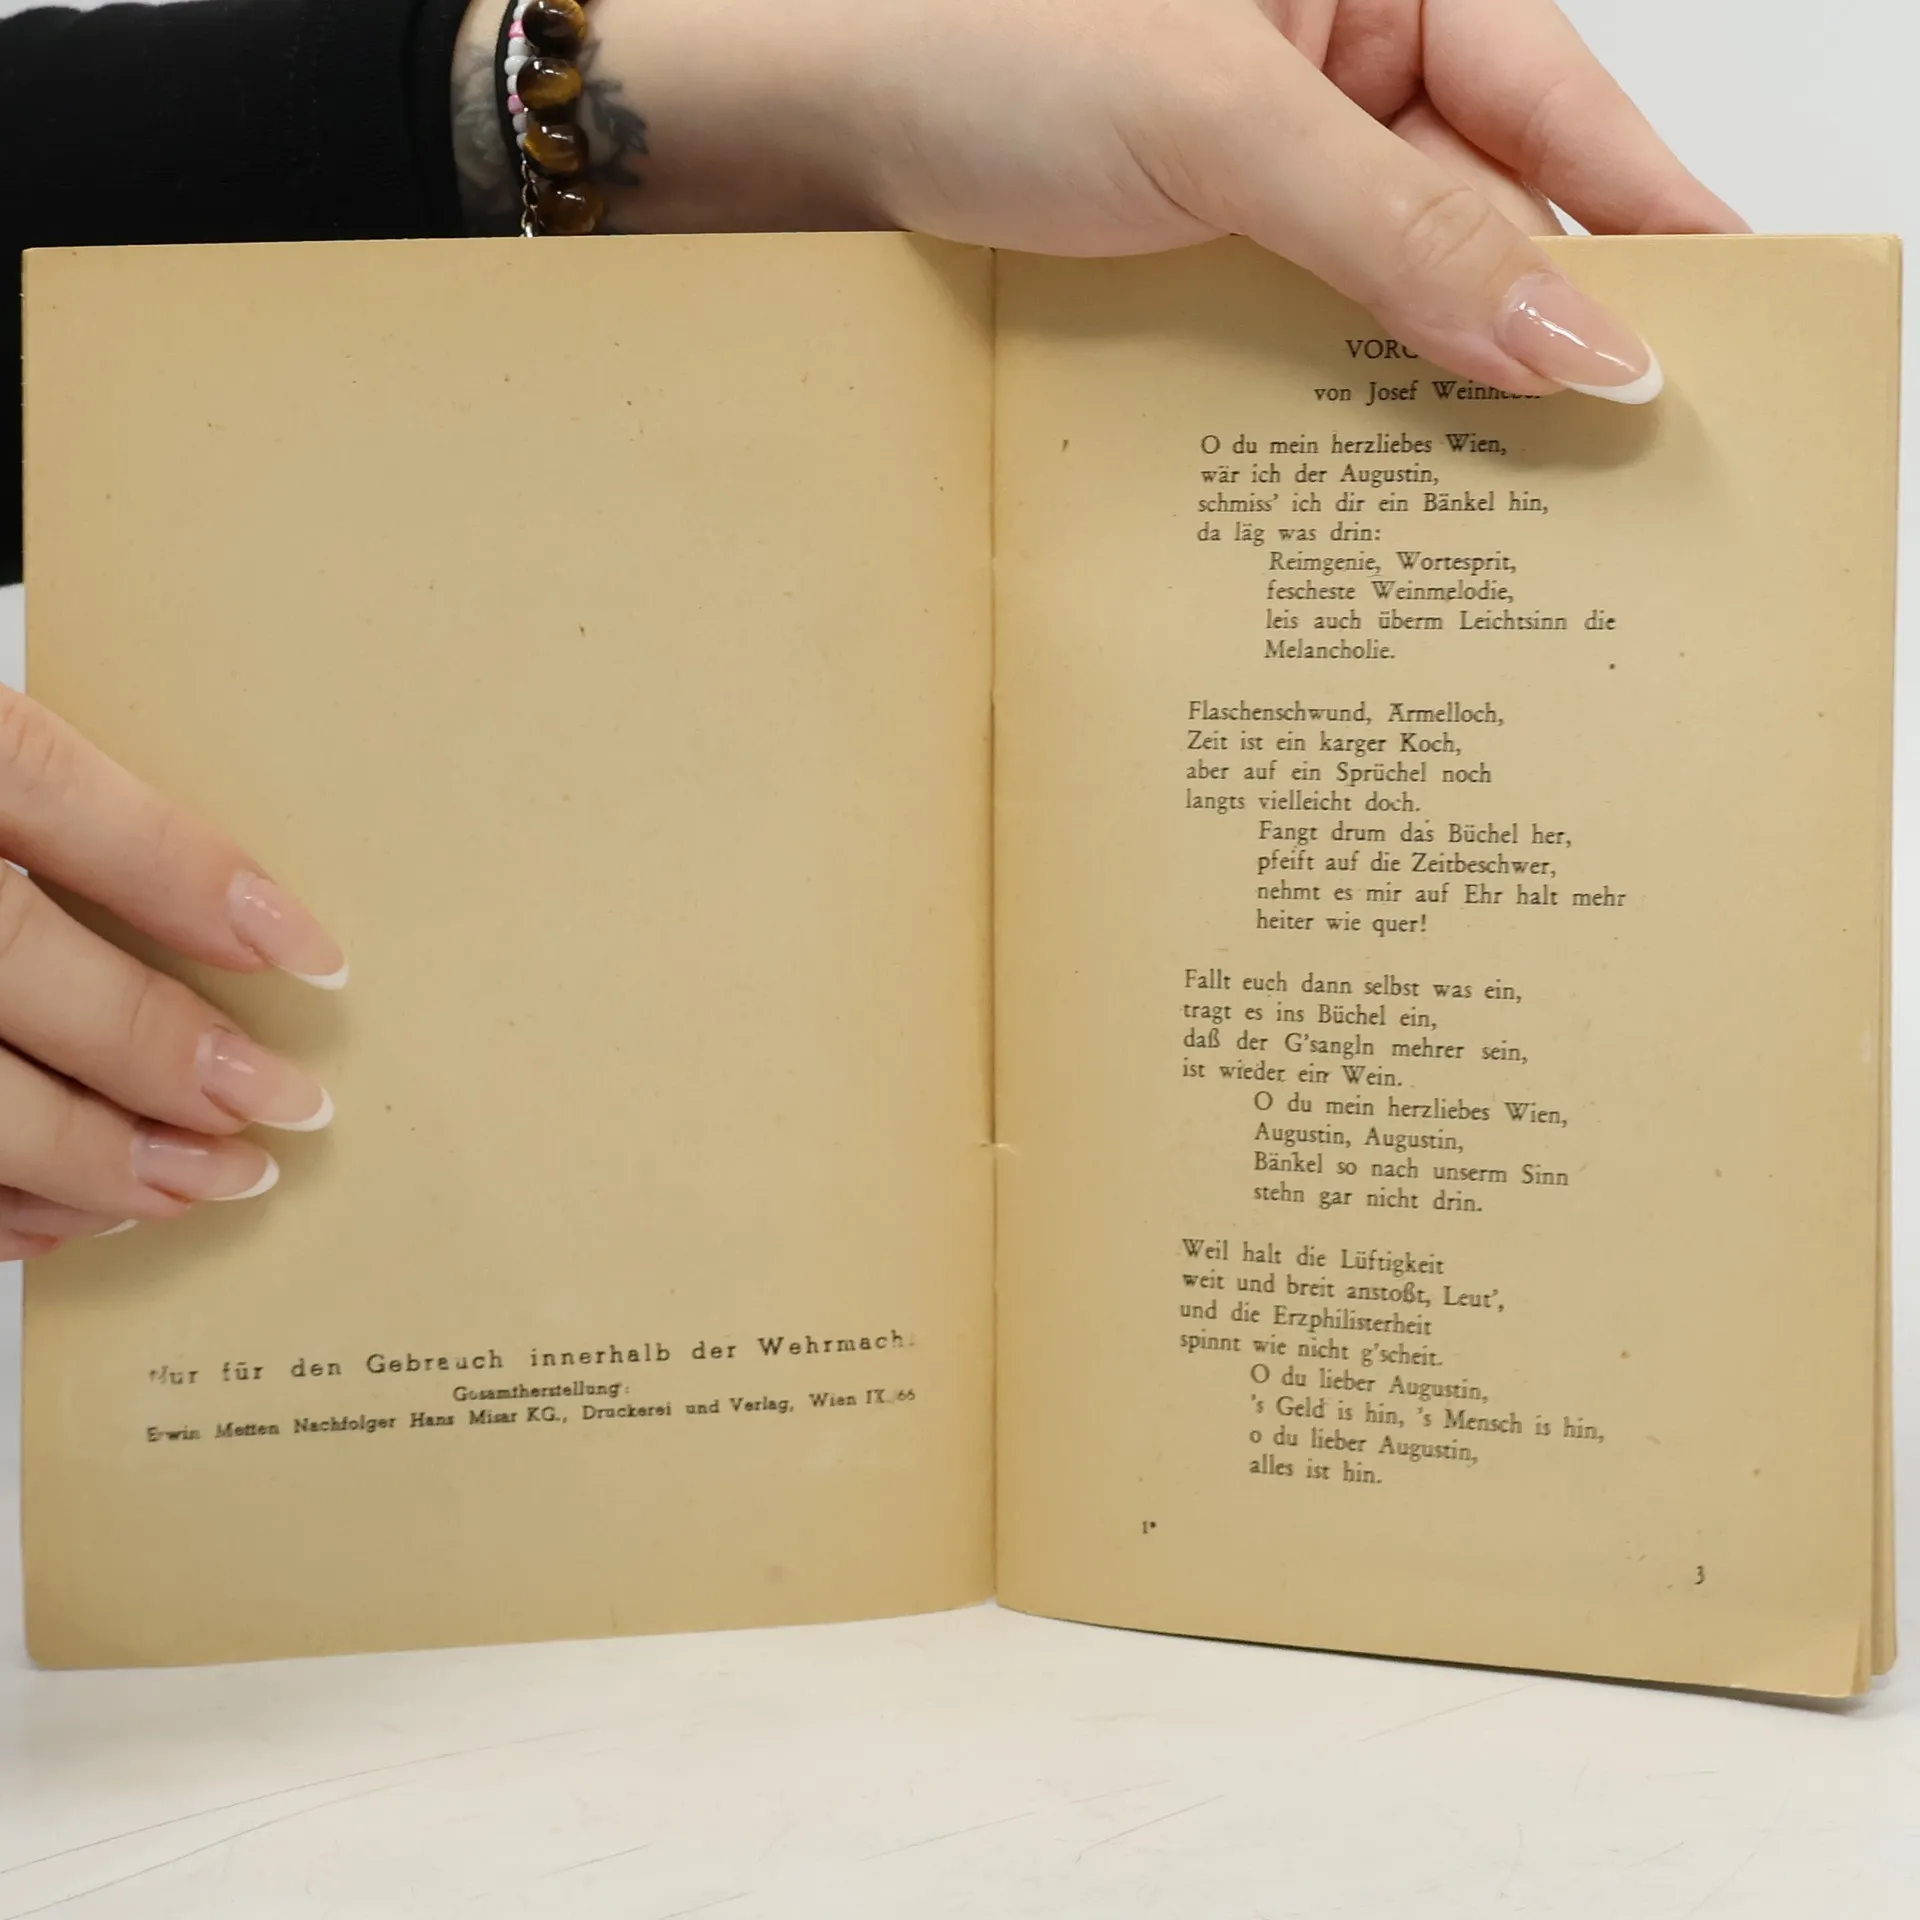 Nur für den Gebrauch innerhalb der Wehrmach.
Gesamtherstellung:
Erwin Metten Nachfolger Hans Misar KG., Druckerei und Verlag, Wien IX./66
von Josef
O du mein herzliebes Wien,
wär ich der Augustin,
schmiss' ich dir ein Bänkel hin,
da läg was drin:
Reimgenie, Wortesprit,
fescheste Weinmelodie,
leis auch überm Leichtsinn die
Melancholie.
Flaschenschwund, Ärmelloch,
Zeit ist ein karger Koch,
aber auf ein Sprüchel noch
langts vielleicht doch.
Fangt drum das Büchel her,
pfeift auf die Zeitbeschwer,
nehmt es mir auf Ehr halt mehr
heiter wie quer!
Fallt euch dann selbst was ein,
tragt es ins Büchel ein,
daß der G'sangln mehrer sein,
ist wieder ein Wein.
O du mein herzliebes Wien,
Augustin, Augustin,
Bänkel so nach unserm Sinn
stehn gar nicht drin.
Weil halt die Lüftigkeit
weit und breit anstoßt, Leut',
und die Erzphilisterheit
spinnt wie nicht g'scheit.
O du lieber Augustin,
's Geld is hin, 's Mensch is hin,
o du lieber Augustin,
alles ist hin.
1*
3